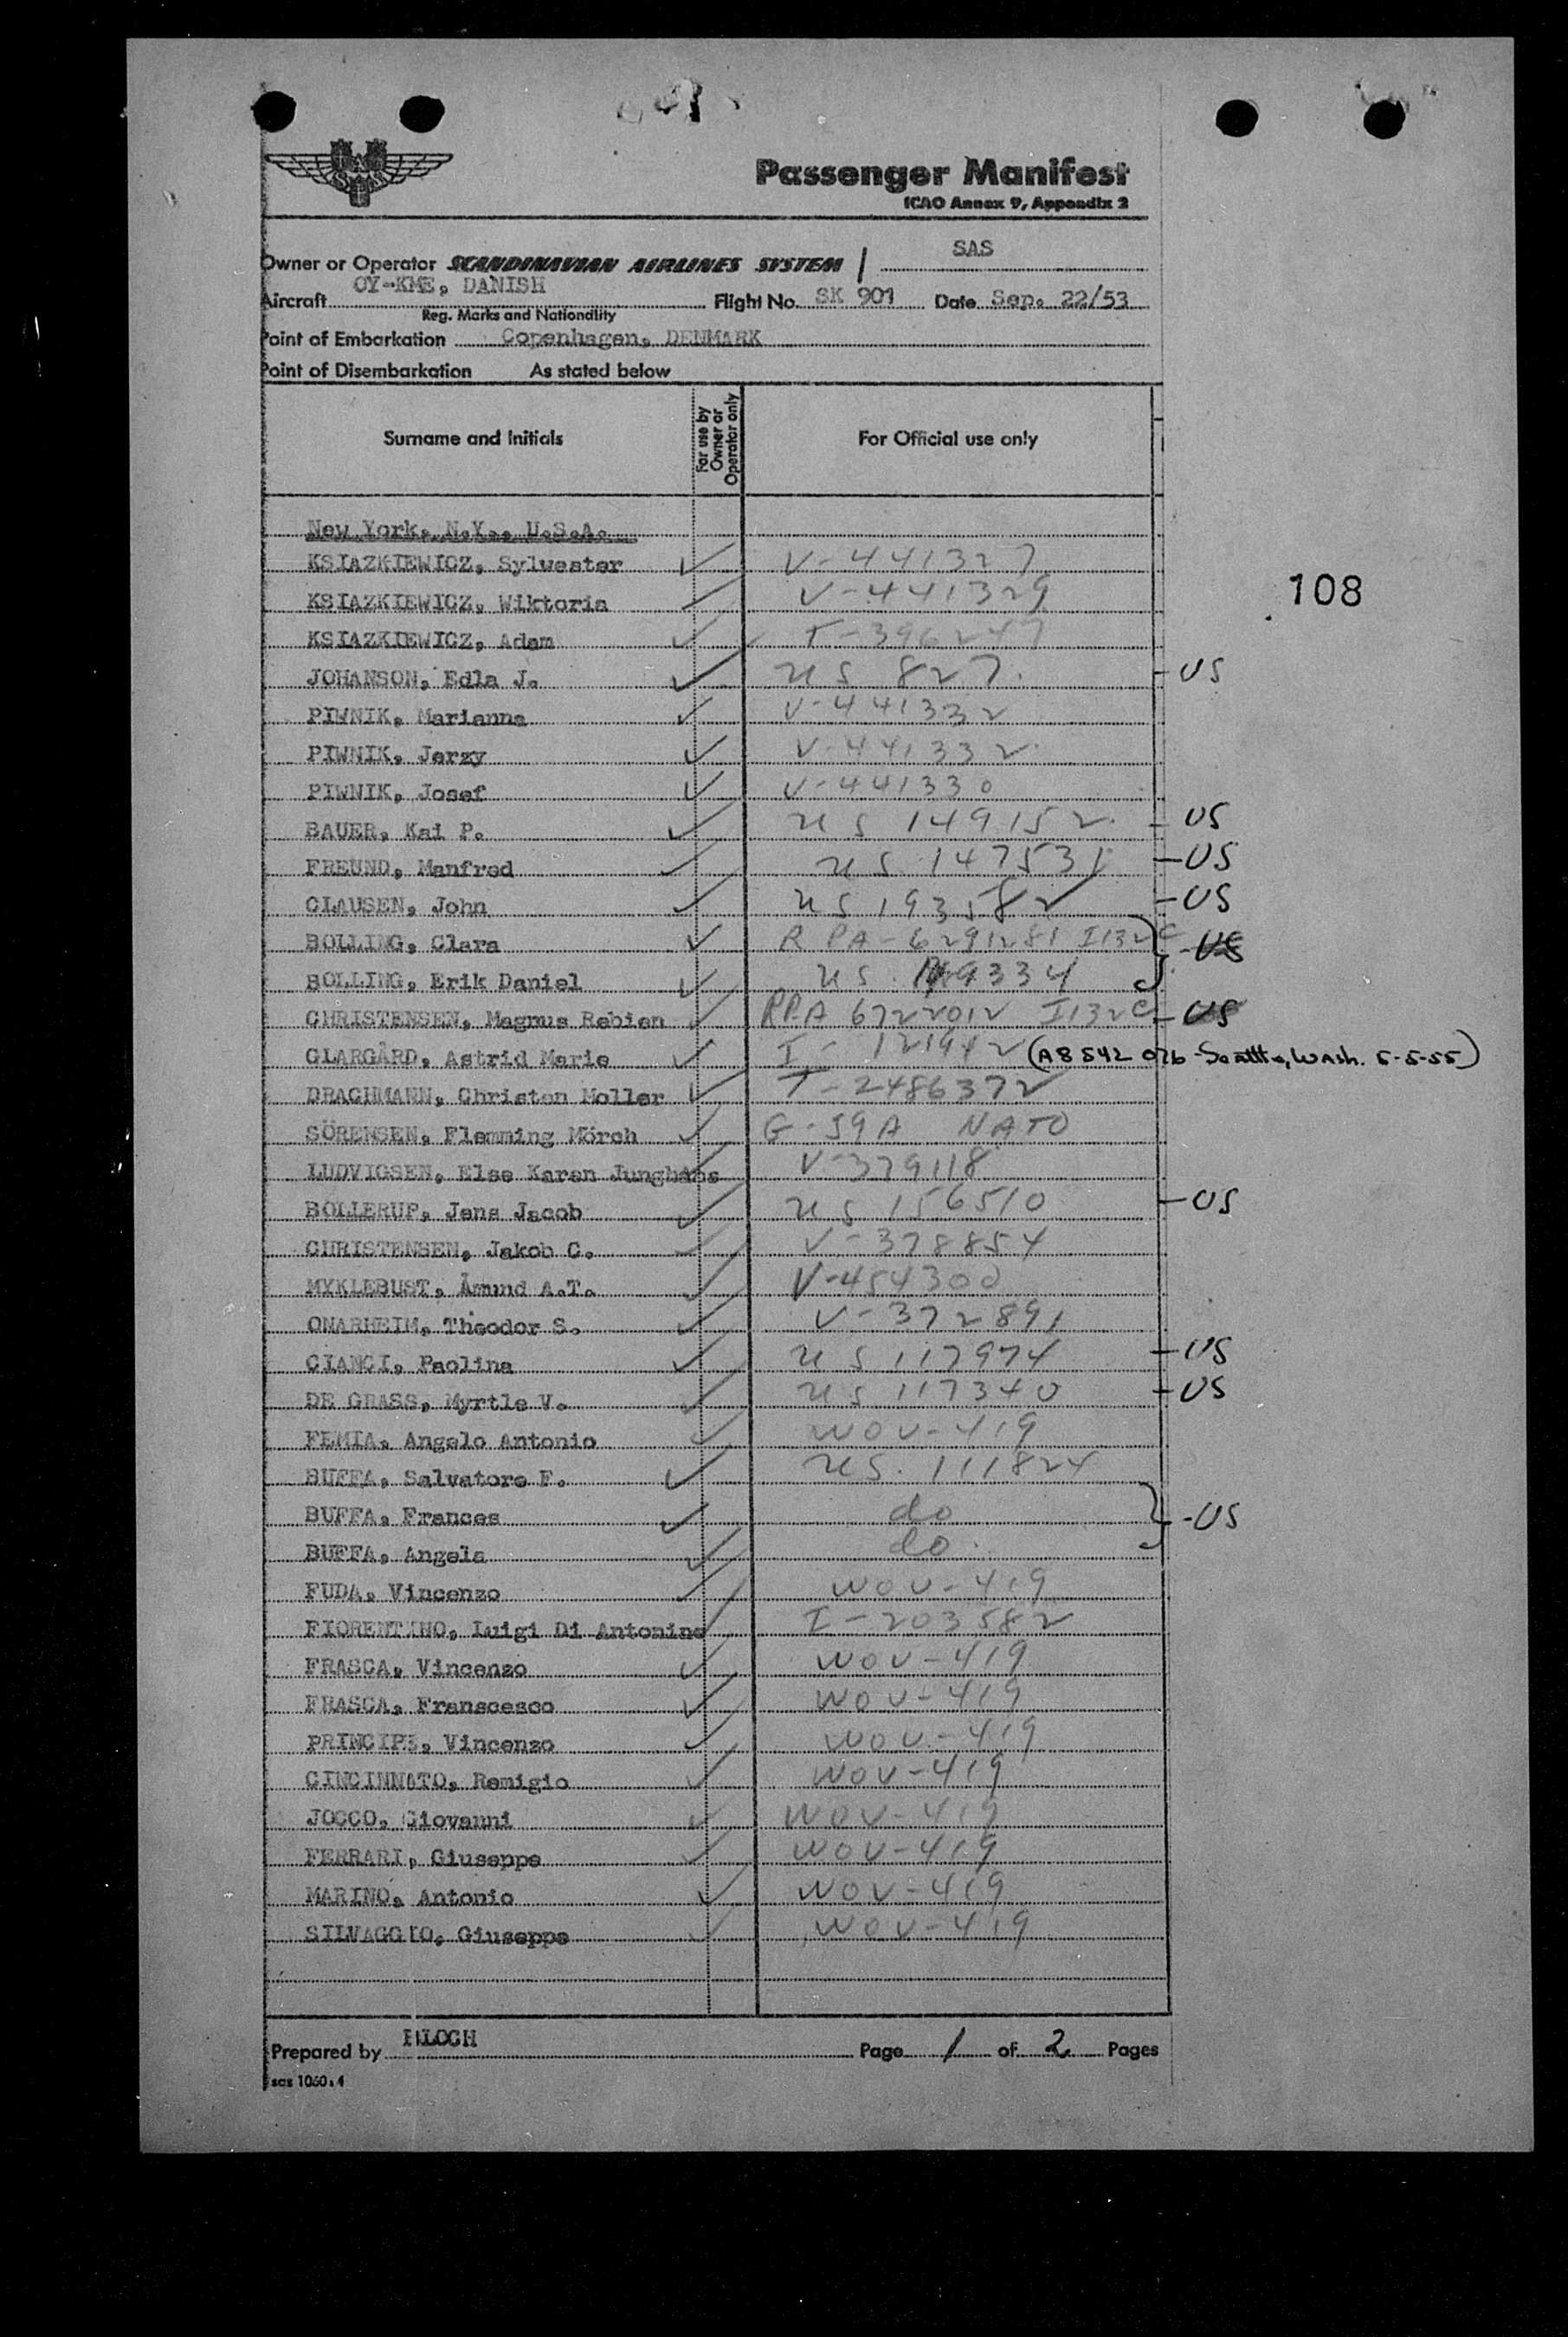 Passenger Manifest
ICAO Annex 9, Appendix 2
Owner or Operator SCANDINAVIAN AIRLINES SYSTEM / SAS
Aircraft OY-KME, DANISH Flight No. SK 901 Date Sep. 22/53
Reg. Marks and Nationality
Point of Embarkation Copenhagen, DENMARK
Point of Disembarkation As stated below
Surname and Initials For use by Owner or Operator only For Official use only
New York, N.Y., U.S.A.
KSIAZKIEWICZ, Sylwester ✓ V-441327
108
KSIAZKIEWICZ, Wiktoria ✓ V-441329
KSIAZKIEWICZ, Adam ✓ T-396247
JOHANSON, Edla J. ✓ US 827. - US
PIWNIK, Marianna ✓ V-441332
PIWNIK, Jerzy ✓ V-441332
PIWNIK, Josef ✓ V-441330
BAUER, Kai P. ✓ US 149152 - US
FREUND, Manfred ✓ US 147531 - US
CLAUSEN, John ✓ US 193582 - US
BOLLING, Clara ✓ R PA-6291281 I132C - US
BOLLING, Erik Daniel ✓ US 9334
CHRISTENSEN, Magnus Rebien ✓ RPA 6722012 I132C - US
GLARGÅRD, Astrid Marie ✓ I-121942 (A8 542 076 Seattle, Wash. 5-5-55)
DRACHMANN, Christen Moller ✓ T-2486372
SÖRENSEN, Flemming Mörch ✓ G-59A NATO
LUDVIGSEN, Else Karen Junghans ✓ V-379118
BOLLERUP, Jens Jacob ✓ US 156510 - US
CHRISTENSEN, Jakob C. ✓ V-378854
MYKLEBUST, Åmund A.T. ✓ V-454300
ONARHEIM, Theodor S. ✓ V-372891
CIANCI, Paolina ✓ US 117974 - US
DE GRASS, Myrtle V. ✓ US 117340 - US
FEMIA, Angelo Antonio ✓ WOV-419
BUFFA, Salvatore F. ✓ US. 111824
BUFFA, Frances ✓ do - US
BUFFA, Angela ✓ do
FUDA, Vincenzo ✓ WOV-419
FIORENTINO, Luigi Di Antonino ✓ I-203582
FRASCA, Vincenzo ✓ WOV-419
FRASCA, Franscesco ✓ WOV-419
PRINCIPE, Vincenzo ✓ WOV-419
CINCINNATO, Remigio ✓ WOV-419
JOCCO, Giovanni ✓ WOV-419
FERRARI, Giuseppe ✓ WOV-419
MARINO, Antonio ✓ WOV-419
SILVAGGIO, Giuseppe ✓ WOV-419
Prepared by Page 1 of 2 Pages
sas 1060:4